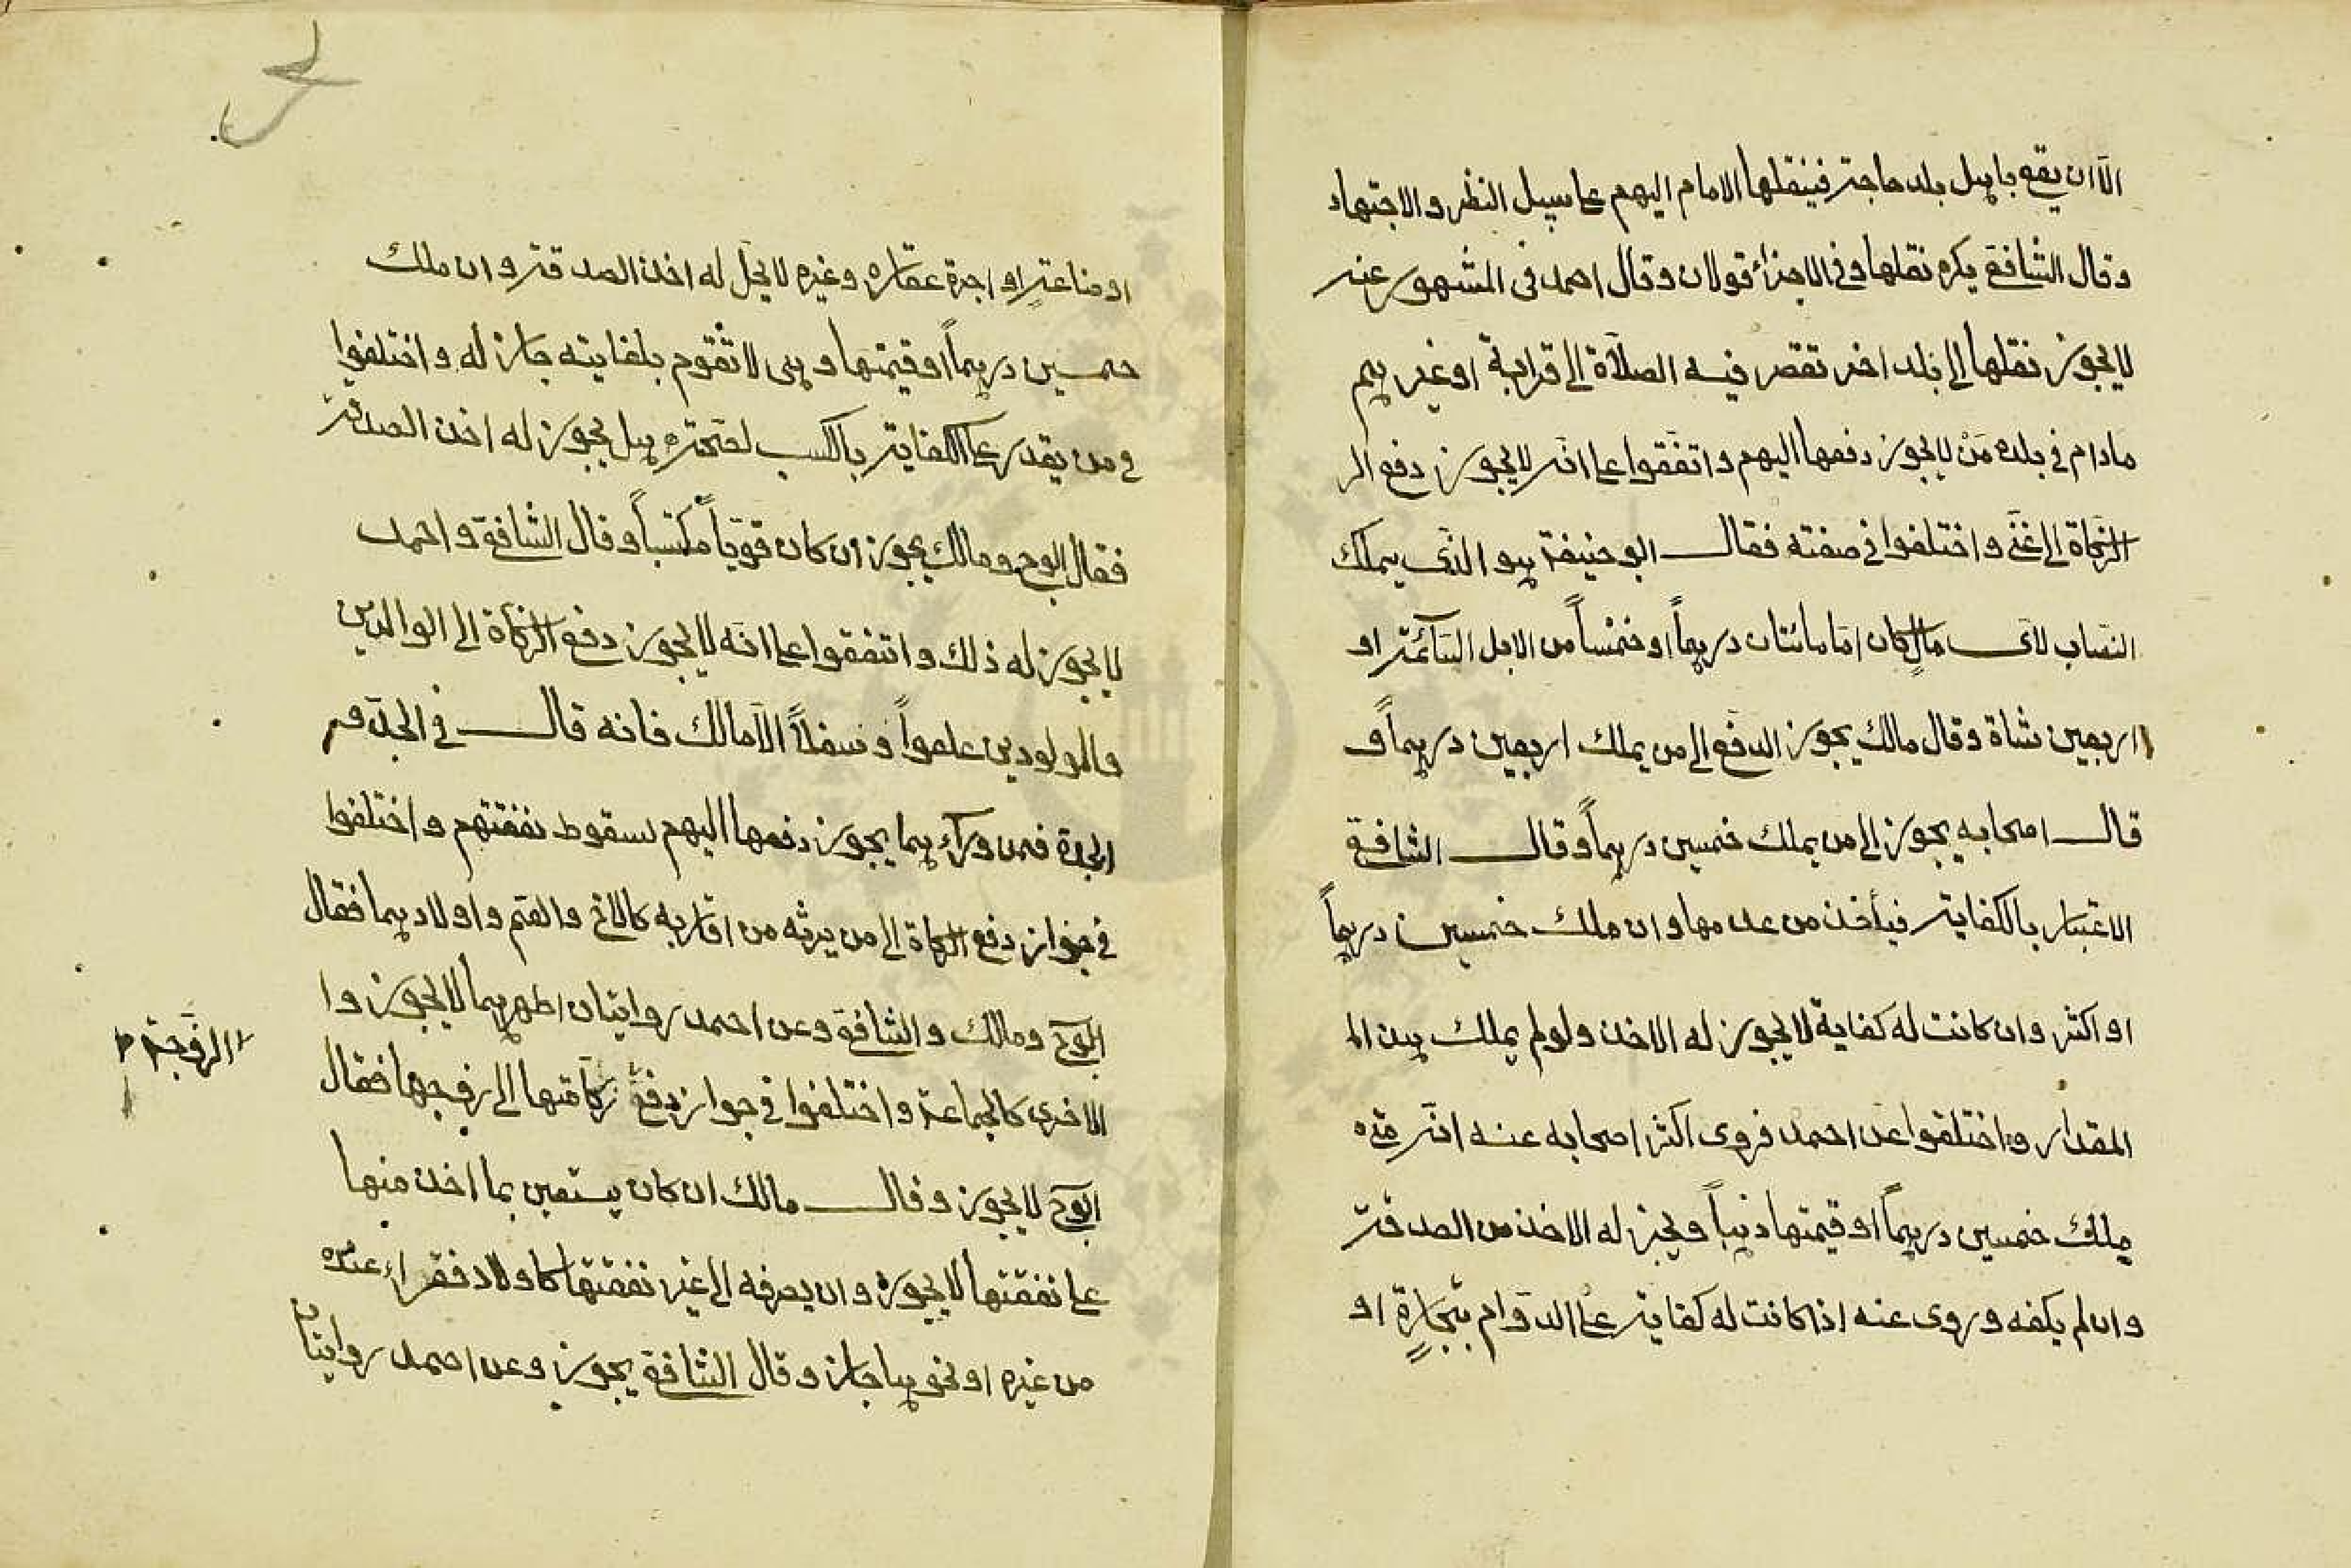 الا ان يقع باهل بلد حاجة فينقلها الامام اليهم على سبيل النظر والاجتهاد
وقال الشافعي يكره نقلها وفي الاجزاء قولان وقال احمد في المشهور عنه
لا يجوز نقلها الى بلد اخر تقصر فيه الصلاة الى قرابة او غيرهم
مادام في بلده من لا يجوز دفعها اليهم واتفقوا على انه لا يجوز دفع الز
الزكاة الى غني واختلفوا في صفته فقال ابو حنيفة هو الذي يملك
النصاب لاي مال كان اما مائتان درهماً او خمساً من الابل السائمة او
اربعين شاة وقال مالك يجوز الدفع الى من يملك اربعين درهماً و
قال اصحابه يجوز الى من يملك خمسين درهماً وقال الشافعي
الاعتبار بالكفاية فيأخذ من عدمها وان ملك خمسين درهماً
او اكثر وان كانت له كفاية لا يجوز له الاخذ ولو لم يملك هذا الم
المقدار واختلفوا عن احمد فروى اكثر اصحابه عنه انه متى
يملك خمسين درهماً او قيمتها ذهباً ولم يجز له الاخذ من الصدقة
وان لم يكفه وروى عنه اذا كانت له كفاية على الدوام بتجارة او
او صناعة او اجرة عقاره وغيره لا يحل له اخذ الصدقة وان ملك
خمسين درهماً او قيمتها وهي لا تقوم بكفايته جاز له واختلفوا
في من يقدر على الكفاية بالكسب لصحته هل يجوز له اخذ الصدقة
فقال ابوح ومالك يجوز وان كان قوياً مكتسباً وقال الشافعي واحمد
لا يجوز له ذلك واتفقوا على انه لا يجوز دفع الزكاة الى الوالدين
والمولودين علوا وسفلا الا مالك فانه قال في الجد و
الجدة فمن وراءهما يجوز دفعها اليهم لسقوط نفقتهم واختلفوا
في جواز دفع الزكاة الى من يرثه من اقاربه كالاخ والعم واولادهما فقال
ابوح ومالك والشافعي وعن احمد روايتان اظهرهما لا يجوز وا
الاخرى كالجماعة واختلفوا في جواز دفع زكاتها الى زوجها فقال
الزوجة
ابوح لا يجوز وقال مالك ان كان يستعين بما اخذ منها
على نفقتها لا يجوز وان يصرفه الى غير نفقتها كاولاد فقراء عنده
من غيره او نحوها جاز وقال الشافعي يجوز وعن احمد روايتان